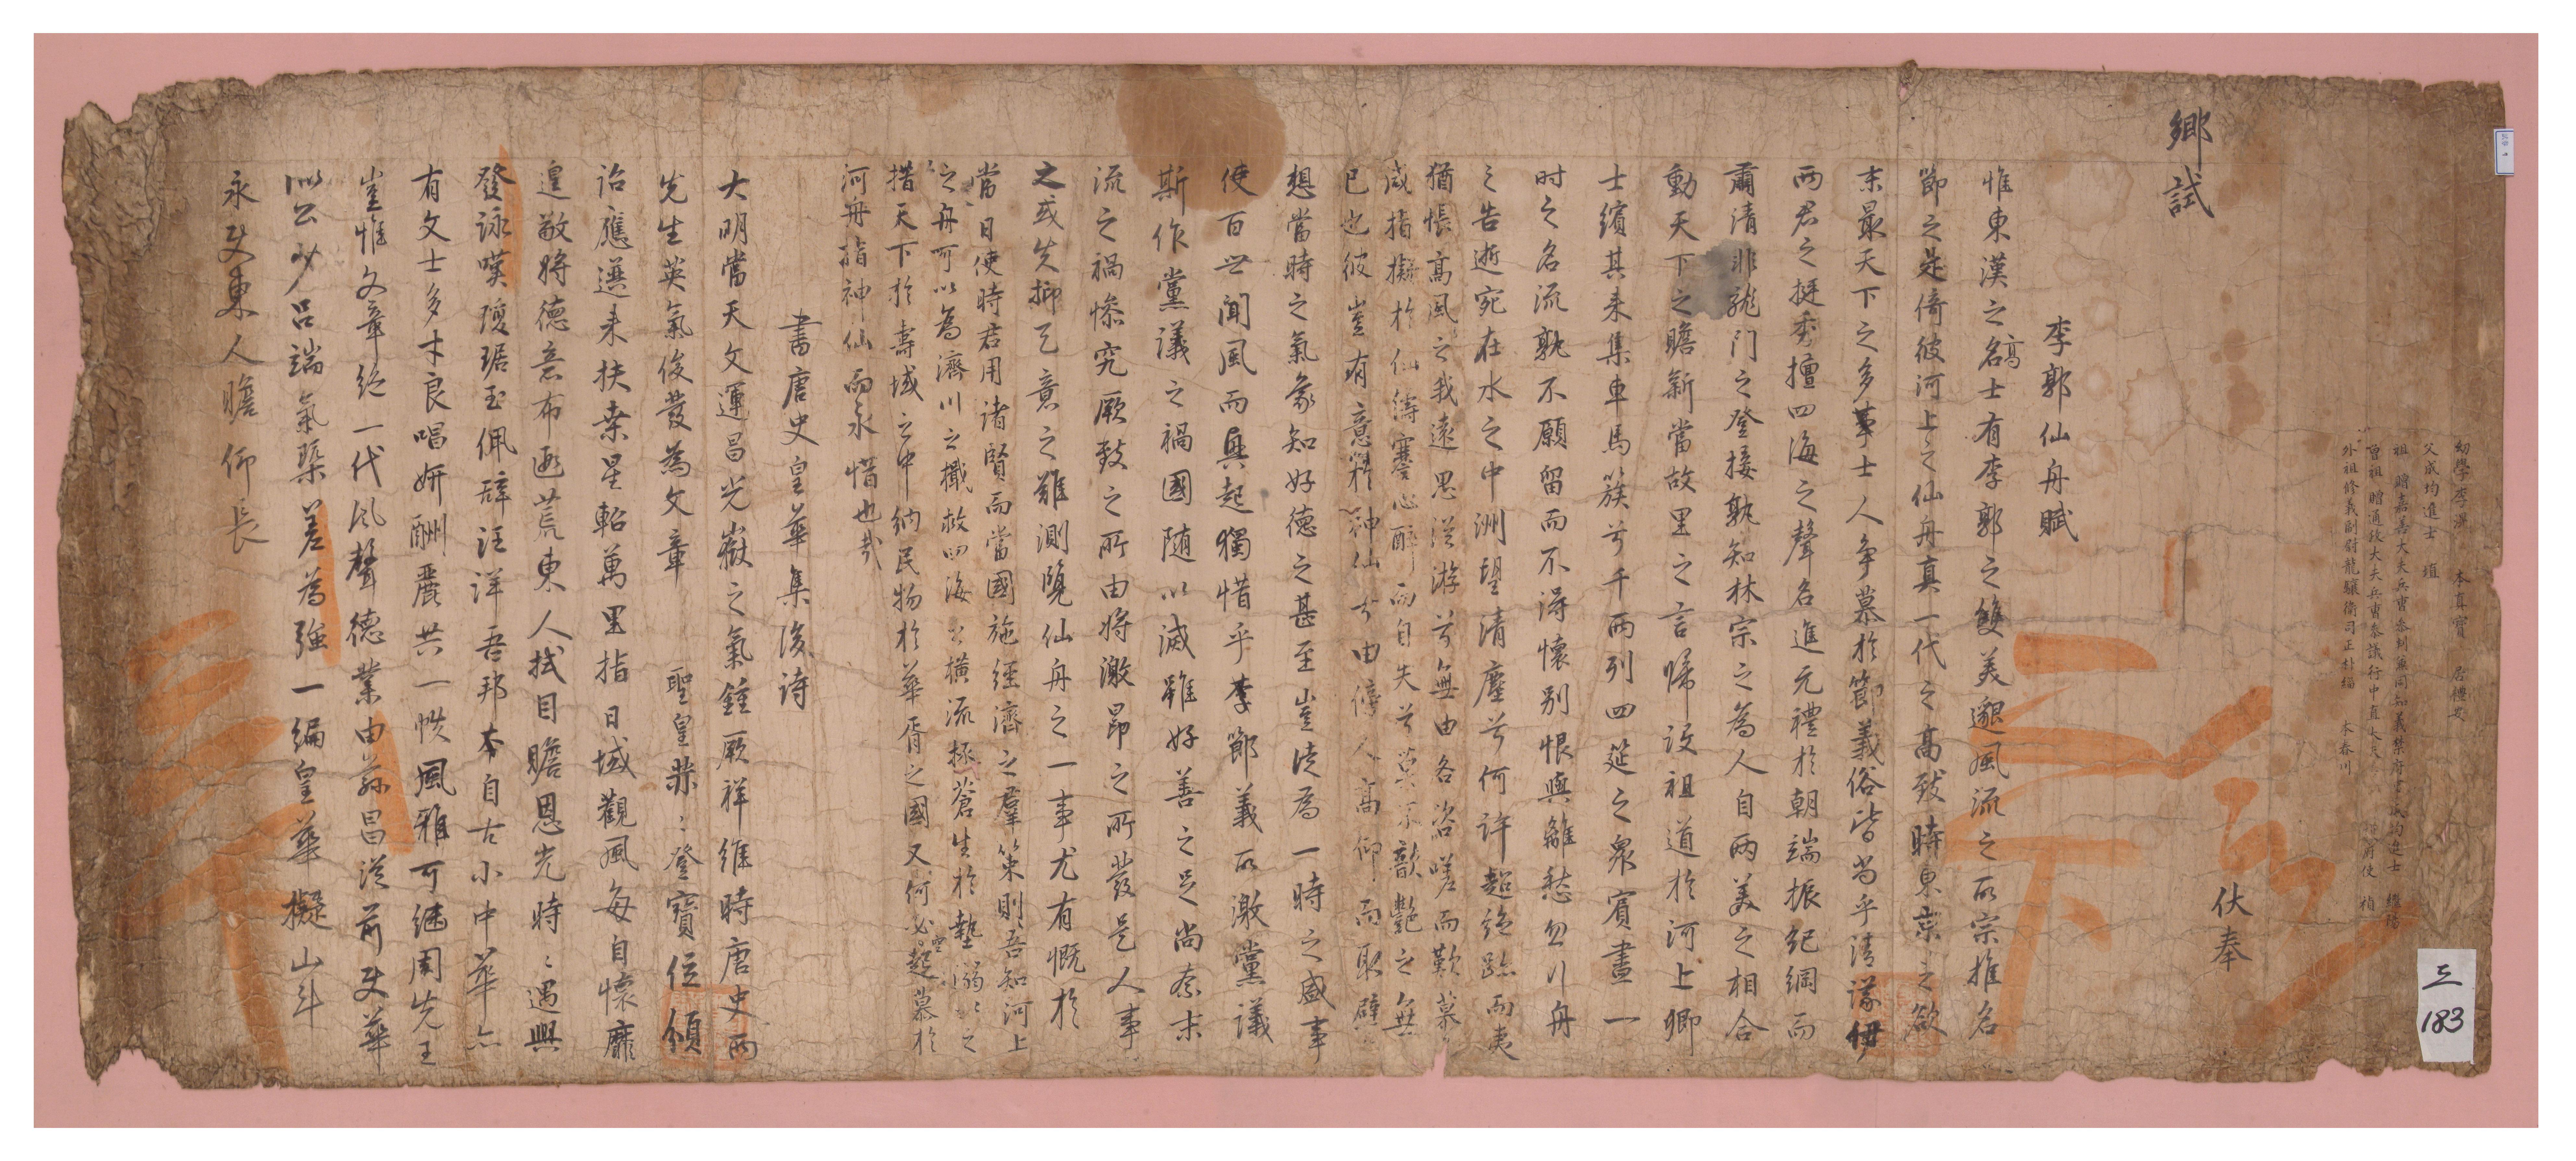 幼學李潩 本眞寶 居禮安
父成均進士 塡
祖 贈嘉善大夫兵曹參判兼同知義禁府事成均進士 繼陽
曾祖 贈通政大夫兵曹參議行中直大夫 都府使 禎
外祖修義副尉龍驤衛司正朴緇 本春川
鄕試
伏奉
李郭仙舟賦
惟東漢之名高士有李郭之雙美邈風流之所宗推名
節之是倚彼河上之仙舟眞一代之高致時東京之欲
末最天下之多事士人爭慕於節義俗皆尚乎淸議伊
兩君之挺秀擅四海之聲名進元禮於朝端振紀綱而
肅淸非龍门之登接孰知林宗之爲人自兩美之相合
動天下之瞻新當故里之言歸設祖道於河上鄕
士繽其來集車馬簇兮千兩列四筵之衆賓盡一
时之名流孰不願留而不淂懷别恨與離愁忽引舟
之告逝宛在水之中洲望淸塵兮何许超絶跡而夷
猶悵高風之我遠思從游兮無由各咨嗟而歎慕
咸指擬於仙儔蹇心醉而自失兮莫不歆艶之無
已也彼豈有意釋神仙兮由停人高仰而取譬
想當時之氣象知好德之甚至豈徒爲一時之盛事
使百世聞風而興起獨惜乎李節義所激黨議
斯作黨議之禍國随以滅雖好善之足尚奈末
流之禍慘究厥致之所由將激昂之所發是人事
之或失抑天意之難測覽仙舟之一事尤有慨於
當日使時君用诸賢而當國施經濟之羣策則吾知河上
之舟可以爲濟川之檝救四海之橫流拯蒼生於墊溺之
措天下於壽域之中納民物於華胥之國又何必起慕於
河舟指神仙而永惜也哉
書唐史皇華集後诗
大明當天文運昌光嶽之氣鍾厥祥維時唐史兩
先生英氣俊發爲文章 聖皇業業登寶位頒
诏應選来扶桒星軺萬里指日域觀風每自懷靡
遑敬將德意布遐荒東人拭目瞻恩光時時遇興
發詠嘆瓊琚玉佩辞汪洋吾邦本自古小中華亦
有文士多才良唱姸酬麗共一帙風雅可继周先王
豈惟文章绝一代风聲德業由䋣昌從前史華
似公少吕端氣槩差爲強一编皇華擬山斗
永史東人瞻仰長
三下
圡
183